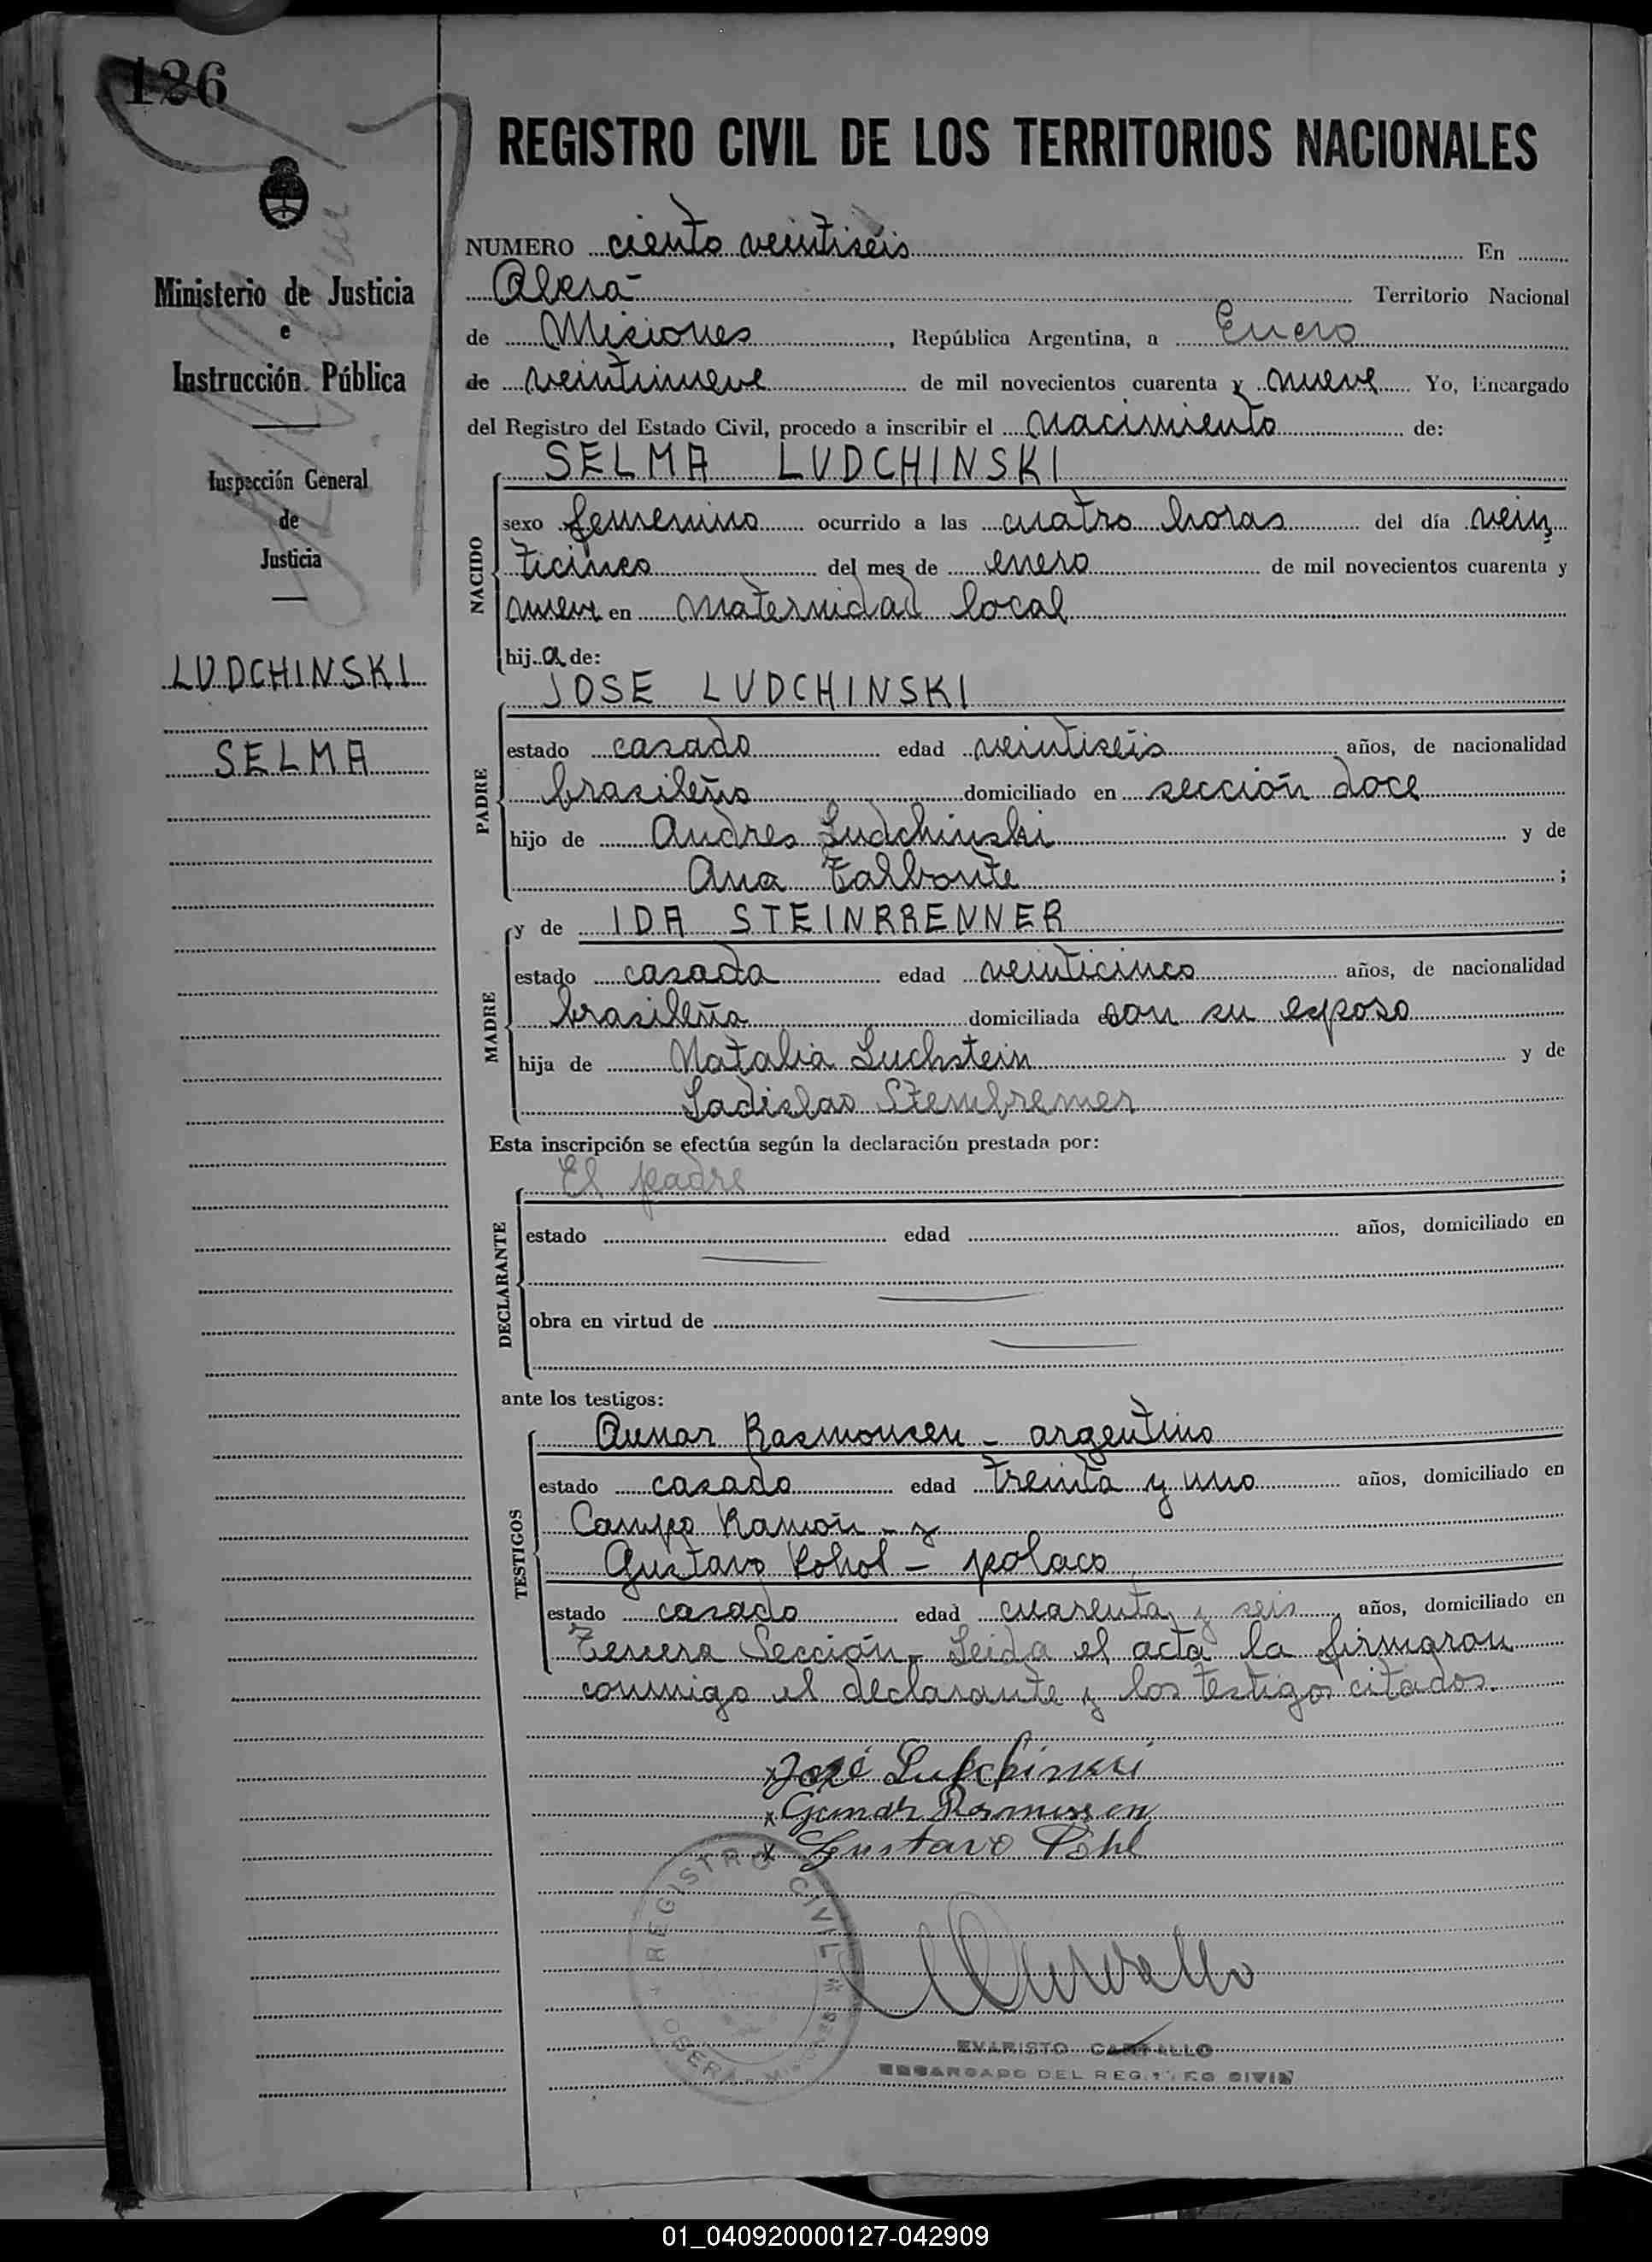 126
REGISTRO CIVIL DE LOS TERRITORIOS NACIONALES
Ministerio de Justicia
e
Instrucción Pública
Inspección General
de
Justicia
LUDCHINSKI
SELMA
NUMERO ciento veintiséis En
Oberá Territorio Nacional
de Misiones, República Argentina, a Enero
de veintinueve de mil novecientos cuarenta y nueve Yo, Encargado
del Registro del Estado Civil, procedo a inscribir el nacimiento de:
SELMA LUDCHINSKI
NACIDO
sexo femenino ocurrido a las cuatro horas del día vein
ticinco del mes de enero de mil novecientos cuarenta y
nueve en maternidad local
hija de:
JOSE LUDCHINSKI
PADRE
estado casado edad veintiséis años, de nacionalidad
brasileño domiciliado en sección doce
hijo de Andres Ludchinski y de
Ana ;
y de IDA STEINBRENNER
MADRE
estado casada edad veinticinco años, de nacionalidad
brasileña domiciliada con su esposo
hija de Natalia Luchstein y de
Ladislao
Esta inscripción se efectúa según la declaración prestada por:
El padre
DECLARANTE
estado edad años, domiciliado en
obra en virtud de
ante los testigos:
TESTIGOS
Rasmousen - argentino
estado casado edad treinta y uno años, domiciliado en
Campo Ramón - y
Gustavo - polaco
estado casado edad cuarenta y seis años, domiciliado en
Tercera Sección - Leida el acta la firmaron
conmigo el declarante y los testigos citados.
x José
x
x Gustavo
REGISTRO CIVIL
OBERA
EVARISTO
ENCARGADO DEL REGISTRO CIVIL
01_040920000127-042909